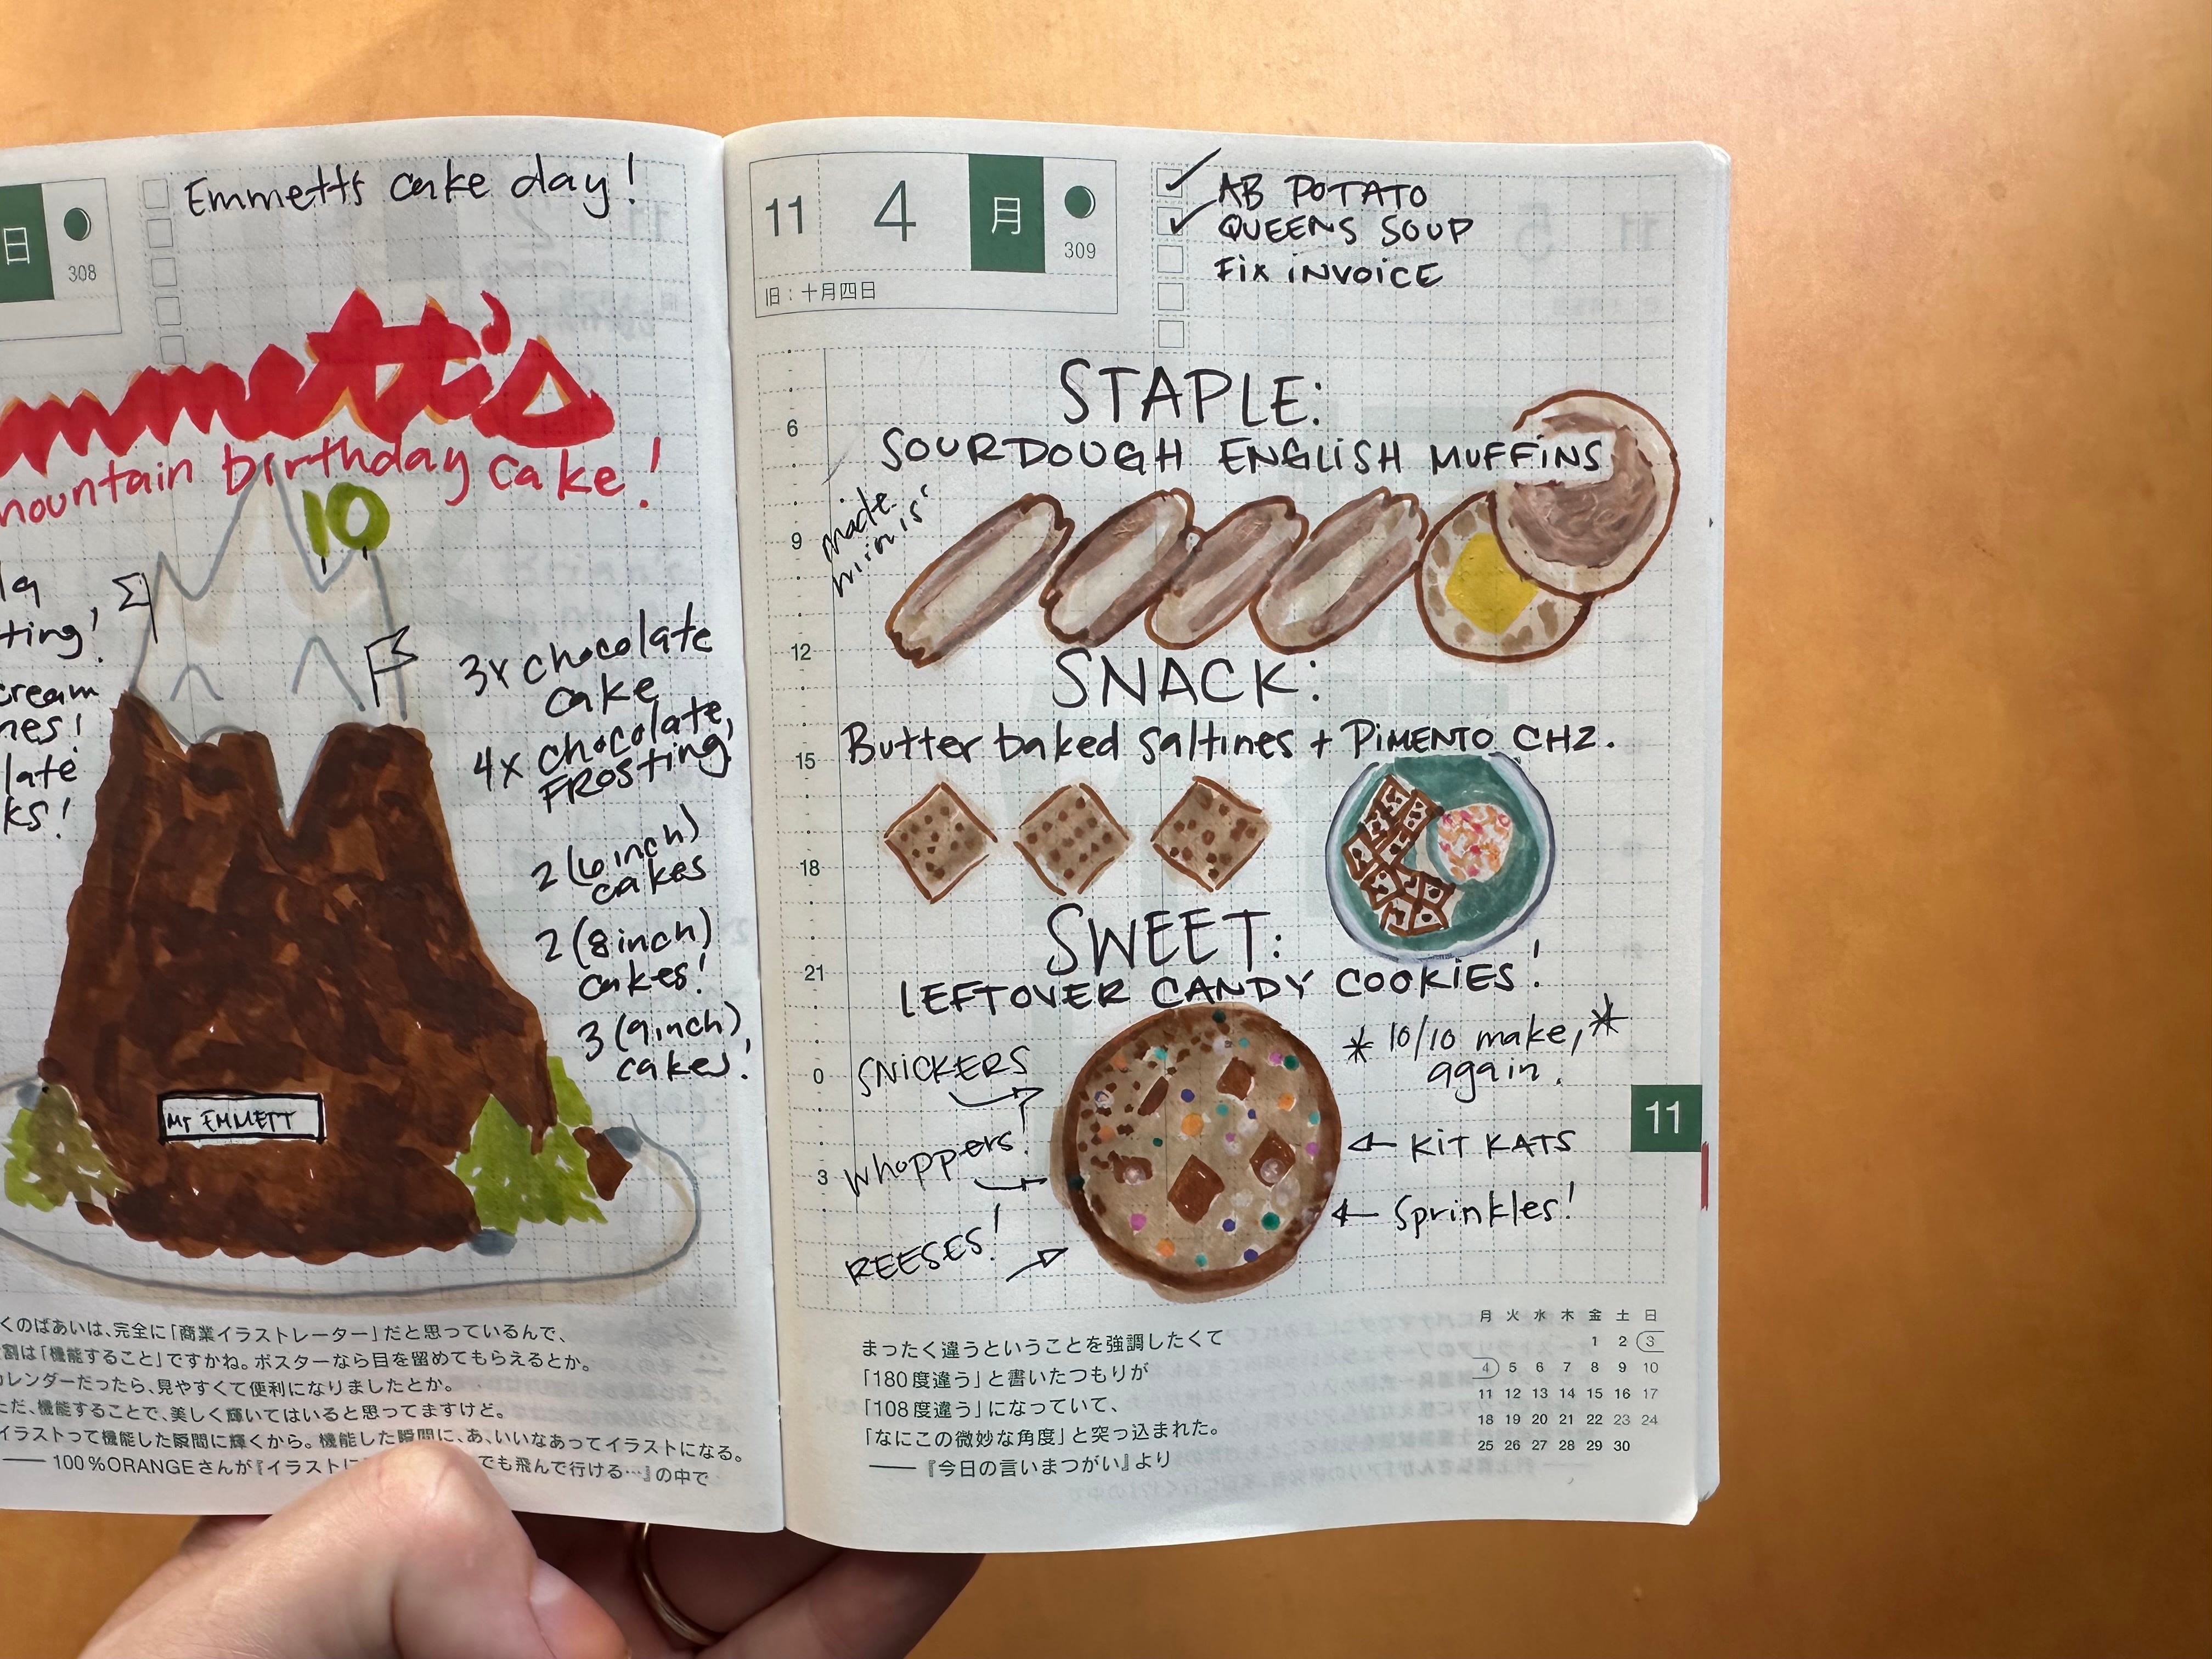 日
308
Emmetts cake day!
mmett's
mountain birthday cake!
10
ting!
cream
nes!
late
ks!
3x chocolate
cake
4x chocolate,
FROSting
2 (6 inch)
cakes
2 (8 inch)
cakes!
3 (9 inch)
cakes!
Mt EMMETT
くのばあいは、完全に「商業イラストレーター」だと思っているんで、
割は「機能すること」ですかね。ポスターなら目を留めてもらえるとか。
カレンダーだったら、見やすくて便利になりましたとか。
ただ、機能することで、美しく輝いてはいると思ってますけど。
イラストって機能した瞬間に輝くから。機能した瞬間に、あ、いいなあってイラストになる。
── 100%ORANGEさんが『イラストに でも飛んで行ける…』の中で
11 4 月
309
旧：十月四日
AB POTATO
QUEENS SOUP
Fix iNVOiCE
STAPLE:
SOURDOUGH ENGLISH MUFFiNS
made
minis
SNACK:
Butter baked saltines + PiMENTO CHZ.
SWEET:
LEFTOVER CANDY COOKiES!
* 10/10 make, *
again.
SNiCKERS
Whoppers!
REESES!
KiT KATS
Sprinkles!
6
9
12
15
18
21
0
3
11
まったく違うということを強調したくて
「180度違う」と書いたつもりが
「108度違う」になっていて、
「なにこの微妙な角度」と突っ込まれた。
── 『今日の言いまつがい』より
月 火 水 木 金 土 日
1 2 3
4 5 6 7 8 9 10
11 12 13 14 15 16 17
18 19 20 21 22 23 24
25 26 27 28 29 30